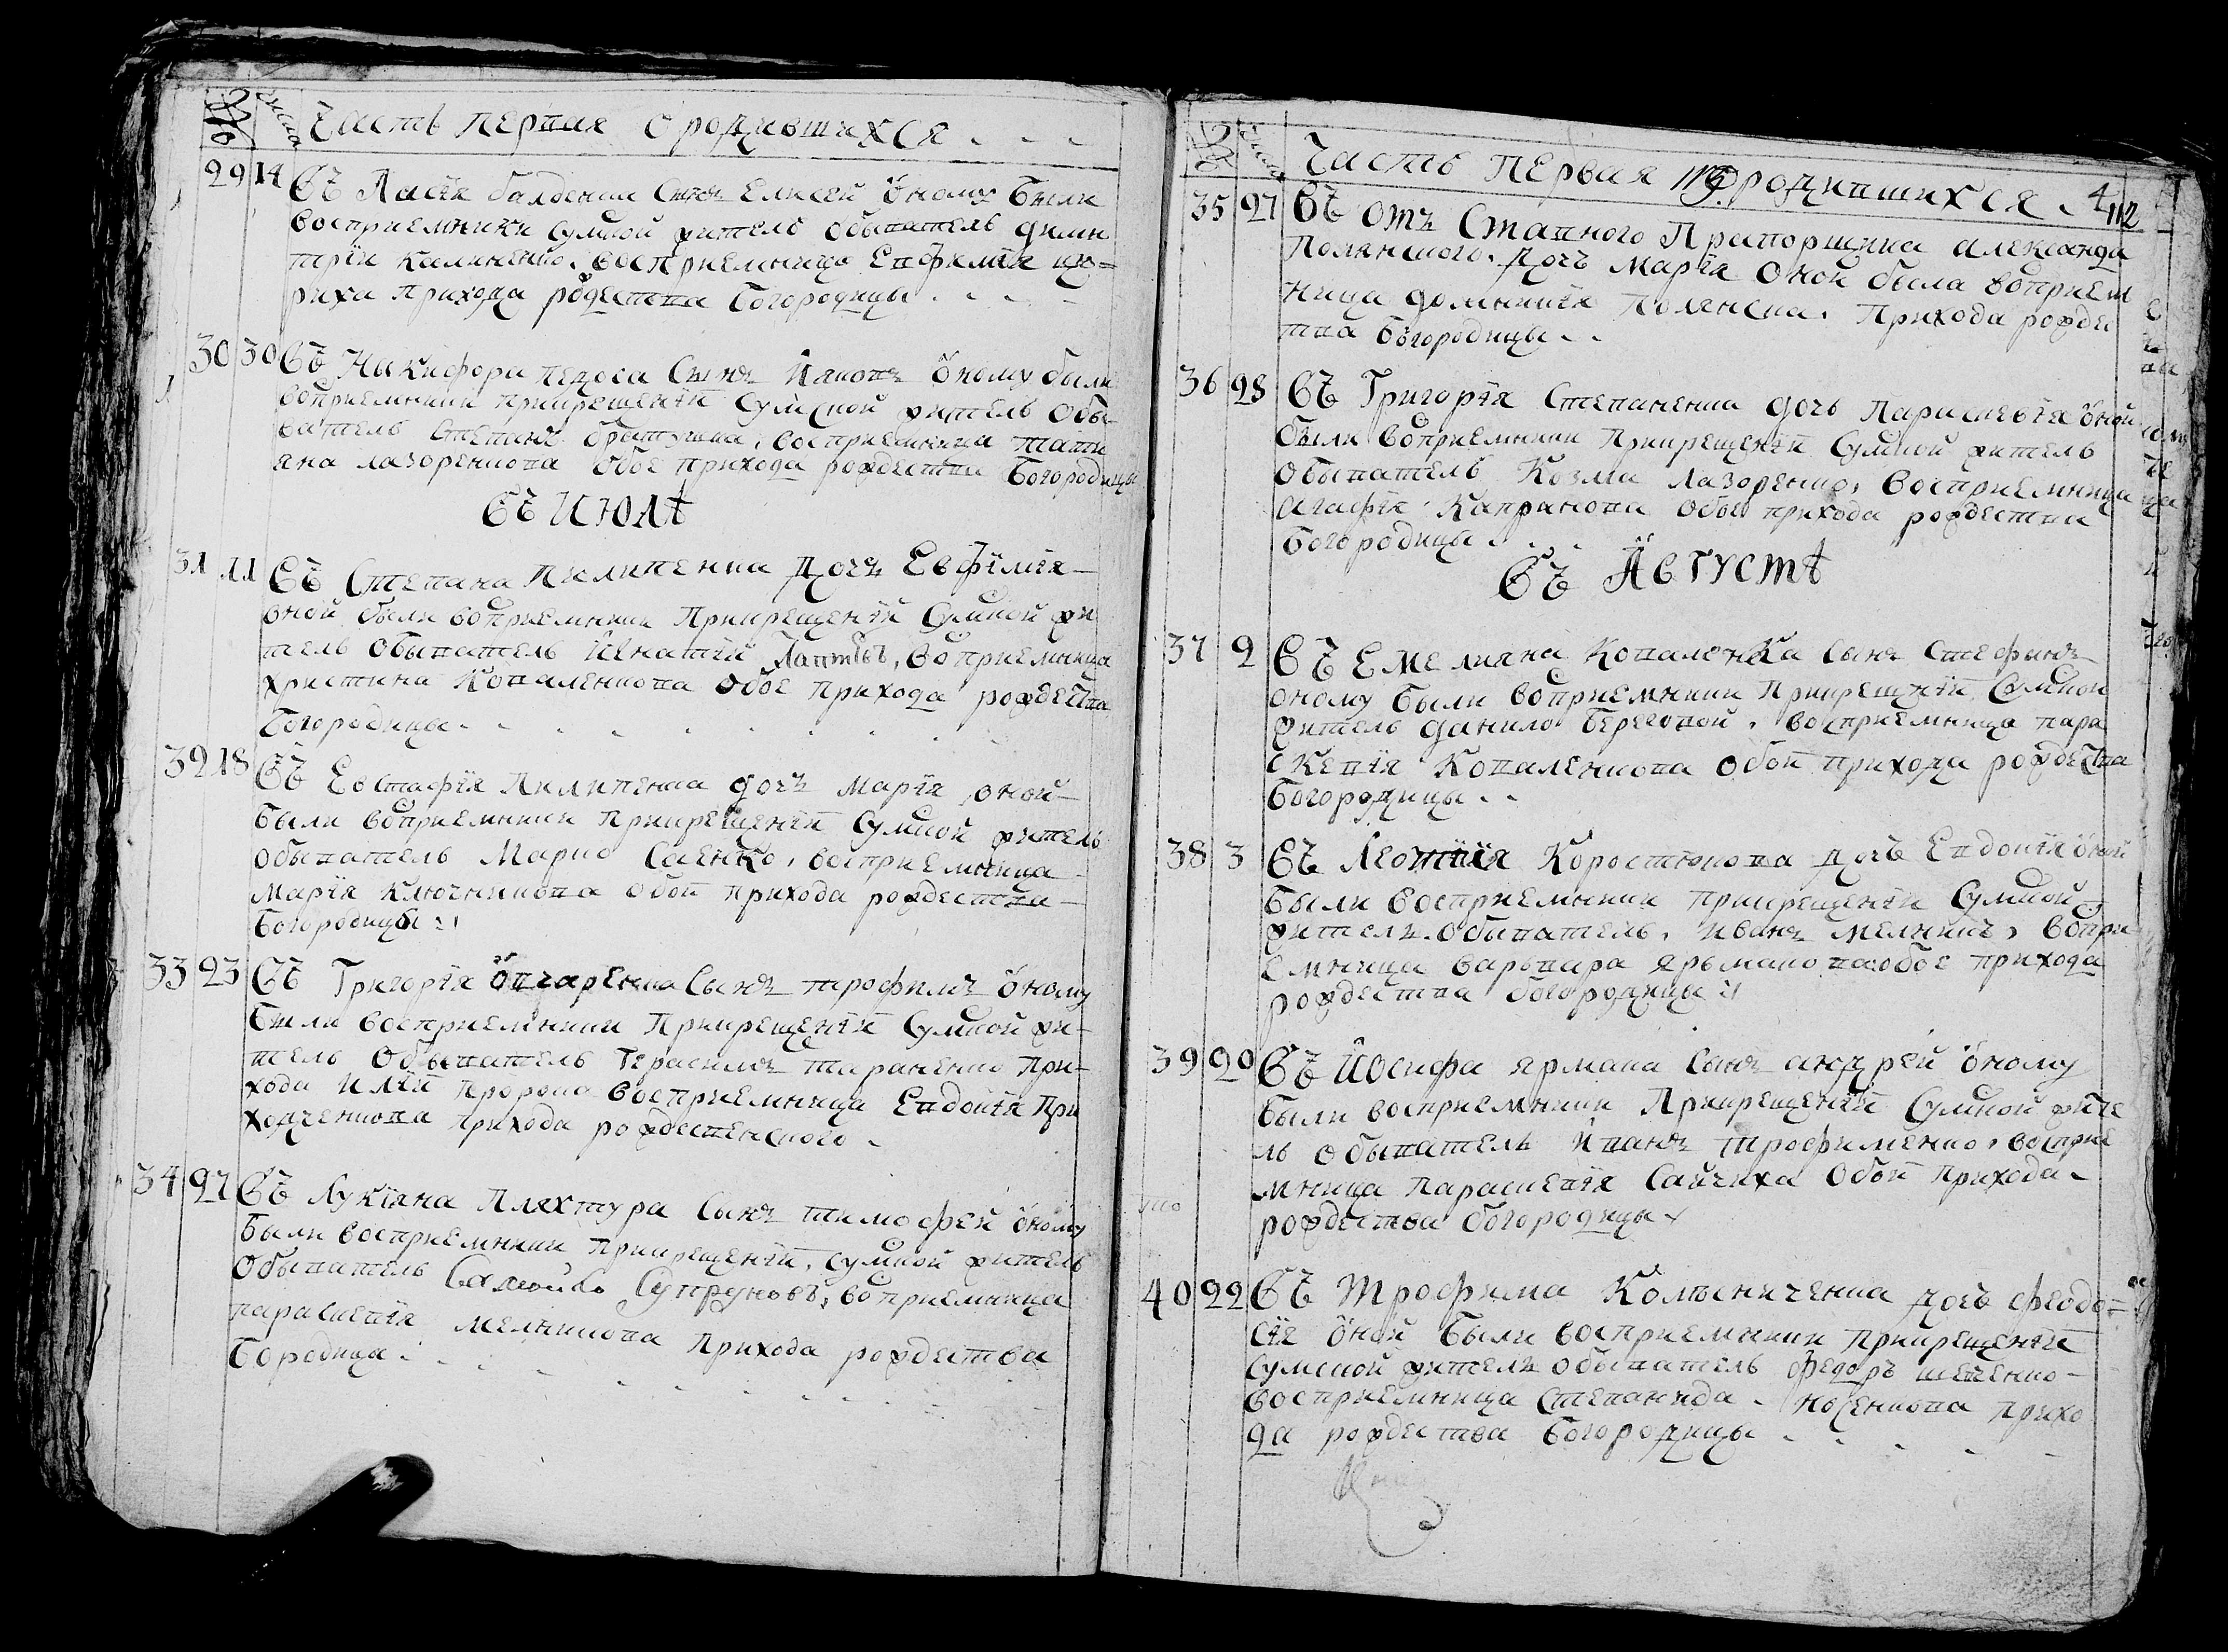 Часть первая о родившихся
29 14 Въ Ласія балденка Сынъ Елисей оному были
восприемники Сумской житель обыватель дими
трій калиненко, восприемница Евфимія
риха прихода рождества богородицы
30 30 Въ Никифора педоса Сынъ Иаковъ оному были
воприемники прикрещеніи Сумской житель обы
ватель Степанъ братушка, восприемница тати
яна лазоренкова обое прихода рождества Богородицы
Въ Июлѣ
31 11 Въ Степана Пилипенка дочъ Евфимія
оной были воприемники Прикрещеніи Сумской жи
тель обыватель Игнатій Лаптѣвъ, воприемница
христина Коваленкова обое прихода рождества
Богородицы
32 18 Въ Евстафія Пилипенка дочъ марія оной
были воприемники прикрещеніи Сумской житель
обыватель Марко Саенко, восприемница
марія ключникова обои прихода рождества
Богородицы
33 23 Въ Григорія овчаренка Сынъ трофимъ оному
были восприемники Прикрещеніи Сумской жи
тель обыватель Герасимъ тараненко при
хода иліи пророка восприемница Евдокія при
ходченкова прихода рождественского
34 27 Въ Лукіяна Пляхтура Сынъ тимофей оному
были восприемники прикрещеніи, сумской житель
обыватель Самойло Супруновъ, воприемница
параскевія мелникова прихода рождества
Бородица
Часть первая о родившихся 4 112
35 27 Въ отъ Ставного Прапорщика александа
Полянского, дочъ Марія оной была воприем
ница домникія Полянска, Прихода рожде
тва Богородицы
36 28 Въ Григорія Степаненка дочь Параскевія оной
были воприемники прикрещеніи Сумской житель
обыватель Козма Лазоренко, восприемница
агафія Капранова обое прихода рождества
Богородицы
Въ Августѣ
37 2 Въ Емелияна Коваленка сынъ Стефанъ
оному были воприемники прикрещеніи Сумской
житель данило береговой, восприемница пара
скевія Коваленкова обои прихода рождества
Богородицы
38 3 Въ Леонтія Коростюкова дочъ Евдокія оной
были восприемники прикрещеніи Сумской
жителъ обыватель, иванъ мелникъ, вопри
емница варьвара ярьмакова обое прихода
рождества богородицы
39 20 Въ Иосифа ярмака сынъ андрей оному
были восприемники Прикрещеніи Сумской жите
ль обыватель Иванъ трофименко, восприе
мница параскевія Сайчиха обои прихода
рождества богородицы
40 22 Въ Трофима Колѣсниченка дочъ феодо
сія оной были восприемники прикрещеніи
Сумской жителъ обыватель федоръ шевченко
восприемница Степанида носенкова прихо
да рождества Богородицы